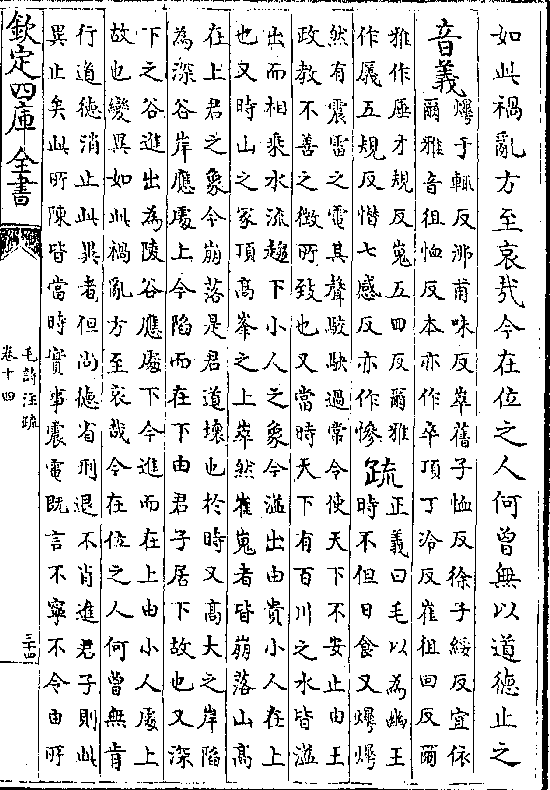 如此禍亂方至哀哉今在位之人何曾無以道德止之
音義爗于輒反沸甫味反崒舊子恤反徐子綏反宜依
爾雅音徂恤反本亦作卒頂丁冷反崔徂回反爾
雅作厜才規反嵬五回反爾雅
作㕒五規反憯七感反亦作慘
疏正義曰毛以為幽王
時不但日食又爗爗
然有震雷之電其聲駭駃過常令使天下不安止由王
政教不善之徵所致也又當時天下有百川之水皆溢
出而相乘水流趨下小人之象今溢出由貴小人在上
也又時山之冢頂高峯之上崒然崔嵬者皆崩落山高
在上君之象今崩落是君道壞也於時又高大之岸陷
為深谷岸應處上今陷而在下由君子居下故也又深
下之谷進出為陵谷應處下今進而在上由小人處上
故也變異如此禍亂方至哀哉今在位之人何曾無肯
行道德消止此異者但尚德省刑退不肖進君子則此
異止矣此所陳皆當時實事震電既言不寧不令由所
欽定四庫全書
毛詩注疏
卷十四
三十四